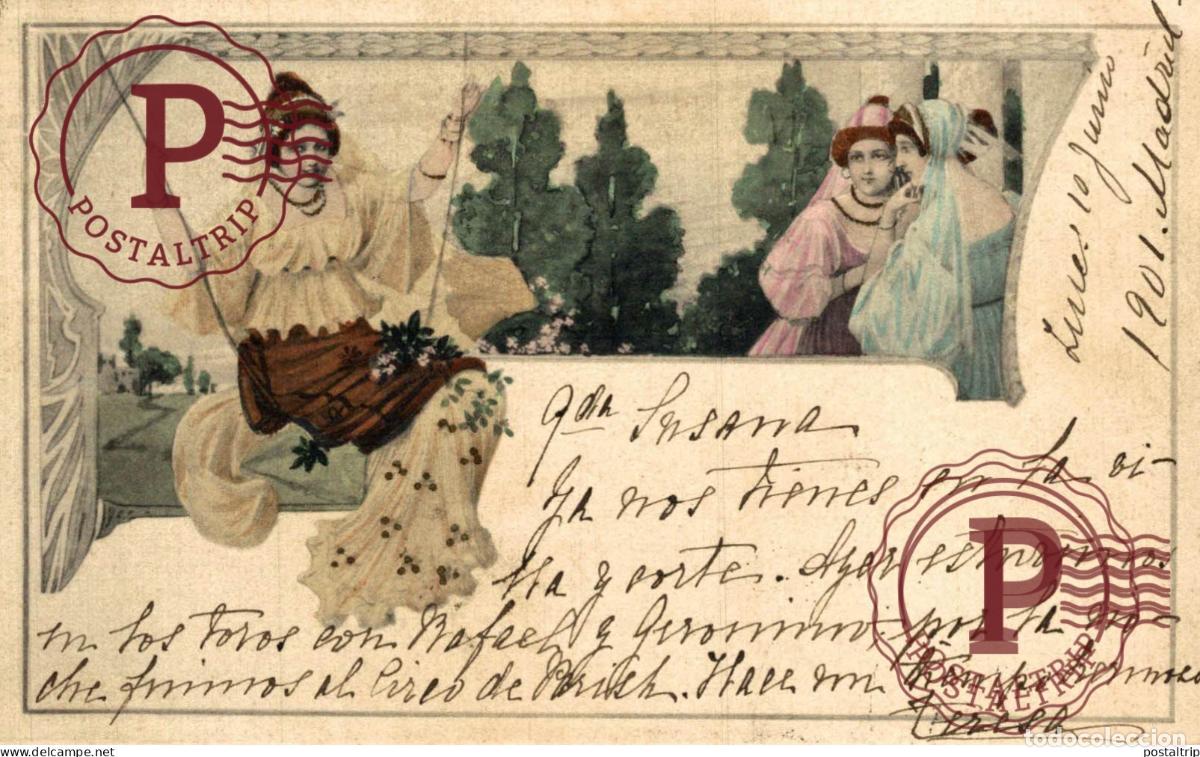 P
POSTALTRIP
Lunes 10 Junio
1901. Madrid
Qda Susana
Ya nos tienes en la vi-
lla y corte. Ayer estuvimos
en los toros con Rafael y Geronimo. por la no-
che fuimos al Circo de Parish. Hace un tiempo hermoso
Teresa
P
POSTALTRIP
todocoleccion
www.delcampe.net
postaltrip